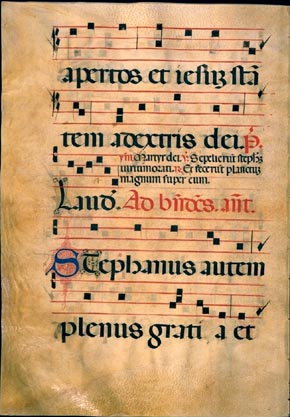 apertos et iesuz stā
tem adextris dei. p̄.
ym. Martyr dei. ℣. Sepelierūt stephāz
uiri timorati. ℟. Et fecerūt planctuz
magnum super eum.
Laud. Ad bn̄dc̄s. an̄t.
Stephanus autem
plenus grati a et